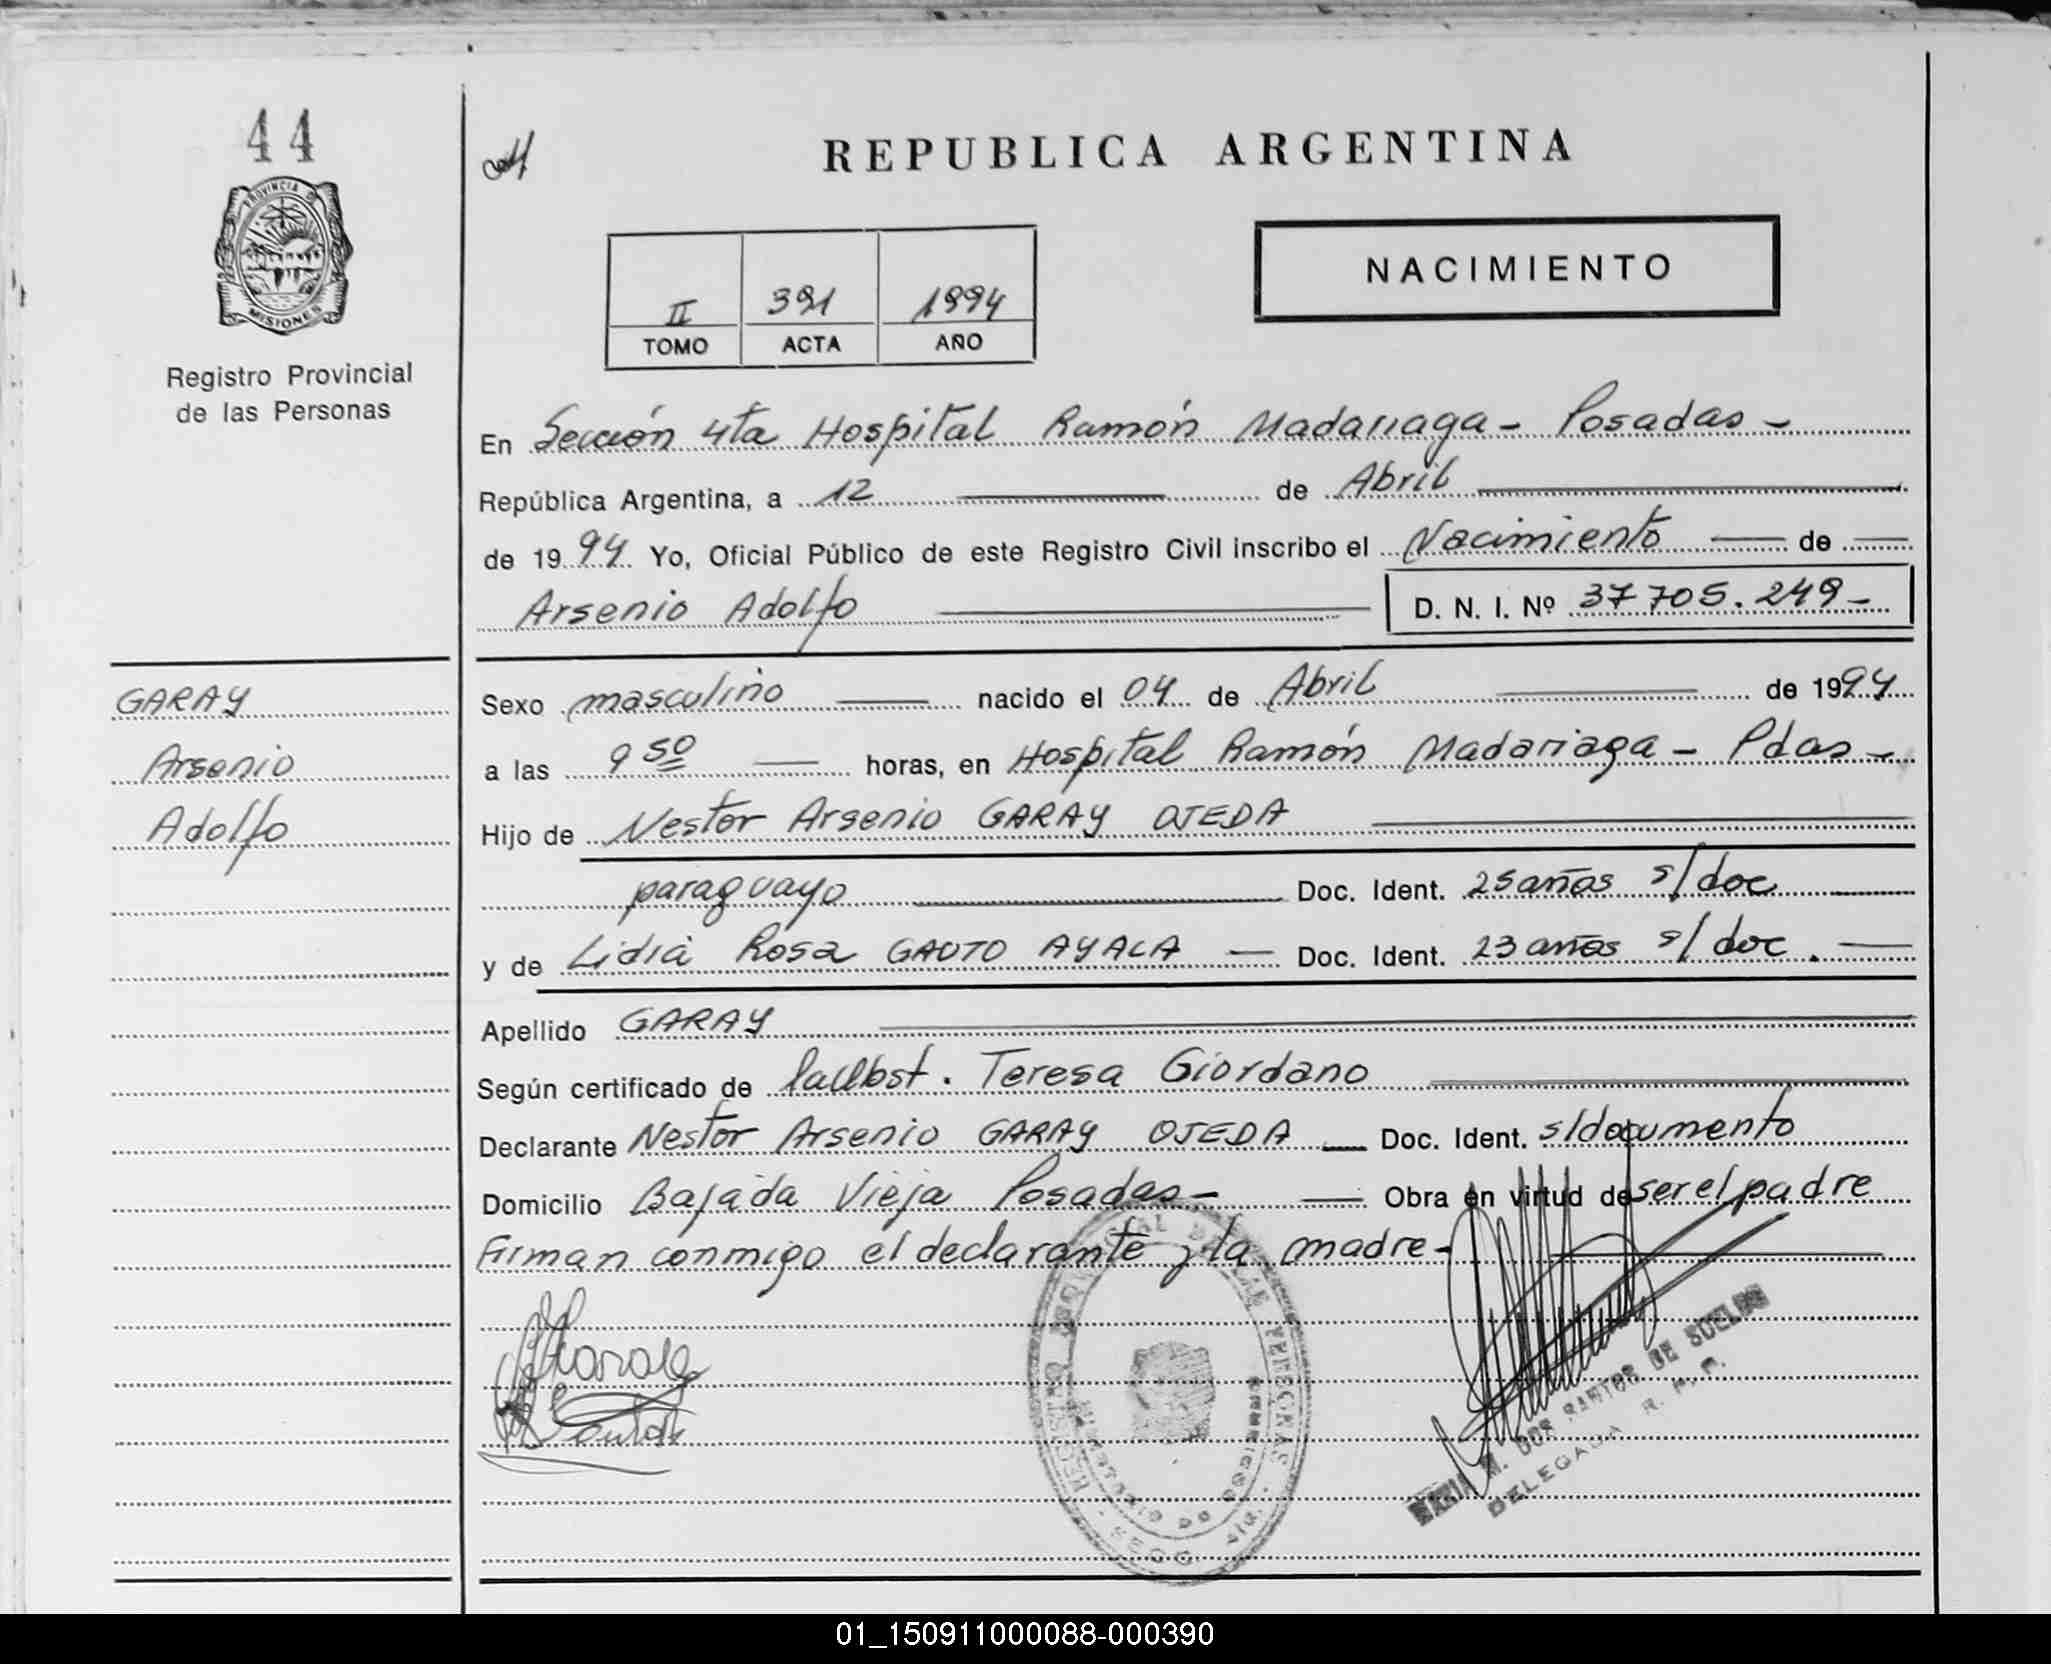 44
PROVINCIA DE
MISIONES
Registro Provincial
de las Personas
REPUBLICA ARGENTINA
NACIMIENTO
II 391 1994
TOMO ACTA AÑO
En Sección 4ta Hospital Ramón Madariaga - Posadas -
República Argentina, a 12 de Abril
de 1994 Yo, Oficial Público de este Registro Civil inscribo el Nacimiento de
Arsenio Adolfo D. N. I. Nº 37705.249-
GARAY
Arsenio
Adolfo
Sexo masculino nacido el 04 de Abril de 1994
a las 9 50 horas, en Hospital Ramón Madariaga - Pdas -
Hijo de Nestor Arsenio GARAY OJEDA
paraguayo Doc. Ident. 25 años s/doc
y de Lidia Rosa GAUTO AYALA Doc. Ident. 23 años s/doc.
Apellido GARAY
Según certificado de Teresa Giordano
Declarante Nestor Arsenio GARAY OJEDA Doc. Ident. s/documento
Domicilio Bajada Vieja Posadas - Obra en virtud de ser el padre
Firman conmigo el declarante y la madre -
M. DOS SANTOS DE
DELEGADA R. P. P.
01_150911000088-000390